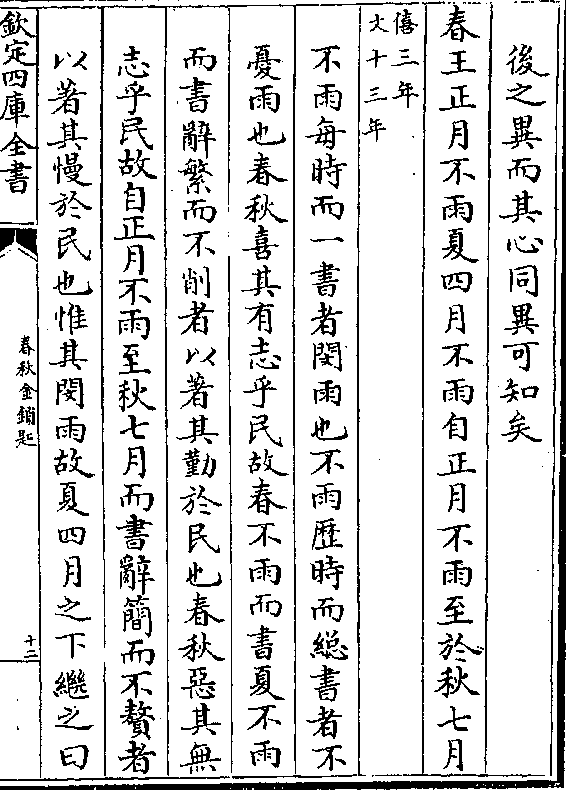 後之異而其心同異可知矣
春王正月不雨夏四月不雨自正月不雨至於秋七月
僖三年
文十三年
不雨每時而一書者閔雨也不雨歴時而緫書者不
憂雨也春秋喜其有志乎民故春不雨而書夏不雨
而書辭繁而不削者以著其勤於民也春秋惡其無
志乎民故自正月不雨至秋七月而書辭簡而不贅者
以著其慢於民也惟其閔雨故夏四月之下繼之曰
欽定四庫全書
春秋金鎖匙
十二